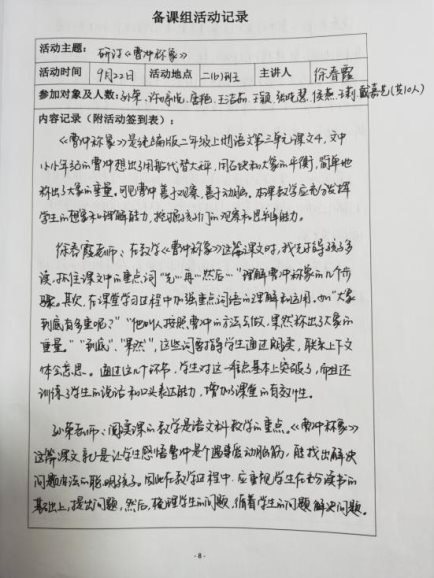 备课组活动记录
活动主题： 研讨《曹冲称象》
活动时间 9月22日 活动地点 二(1)班 主讲人 徐春霞
参加对象及人数：孙荣、 唐艳、王洁茹、王颖、 (共10人)
内容记录（附活动签到表）：
《曹冲称象》是统编版二年级上册语文第三单元课文4，文中
小小年纪的曹冲想出了用船代替大秤，用石块和大象的平衡，简单地
称出了大象的重量。可见曹冲善于观察、善于动脑。本课教学应充分发挥
学生的想象和理解能力，挖掘孩子们的观察和思维能力。
徐春霞老师：在教学《曹冲称象》这篇课文时，我先让孩子多
读，抓住课文中的重点词“先…再…然后…”理解曹冲称象的几个步
骤。其次，在课堂学习过程中加强重点词语的理解和运用。如“大象
到底有多重呢？”“他叫人按照曹冲的方法去做，果然称出了大象的
重量。”“到底”、“果然”，这些词要指导学生通过朗读，联系上下文
体会意思。通过这几个环节，学生对这一难点基本上突破了，而且还
训练了学生的说话和口头表达能力，增加了课堂的有效性。
孙荣老师：阅读课的教学是语文科教学的重点。《曹冲称象》
这篇课文就是让学生感悟曹冲是个遇事爱动脑筋，能找出解决
问题办法的聪明孩子。因此在教学过程中，应重视学生在充分读书的
基础上，提出问题，然后，梳理学生的问题，循着学生的问题解决问题。
- 8 -